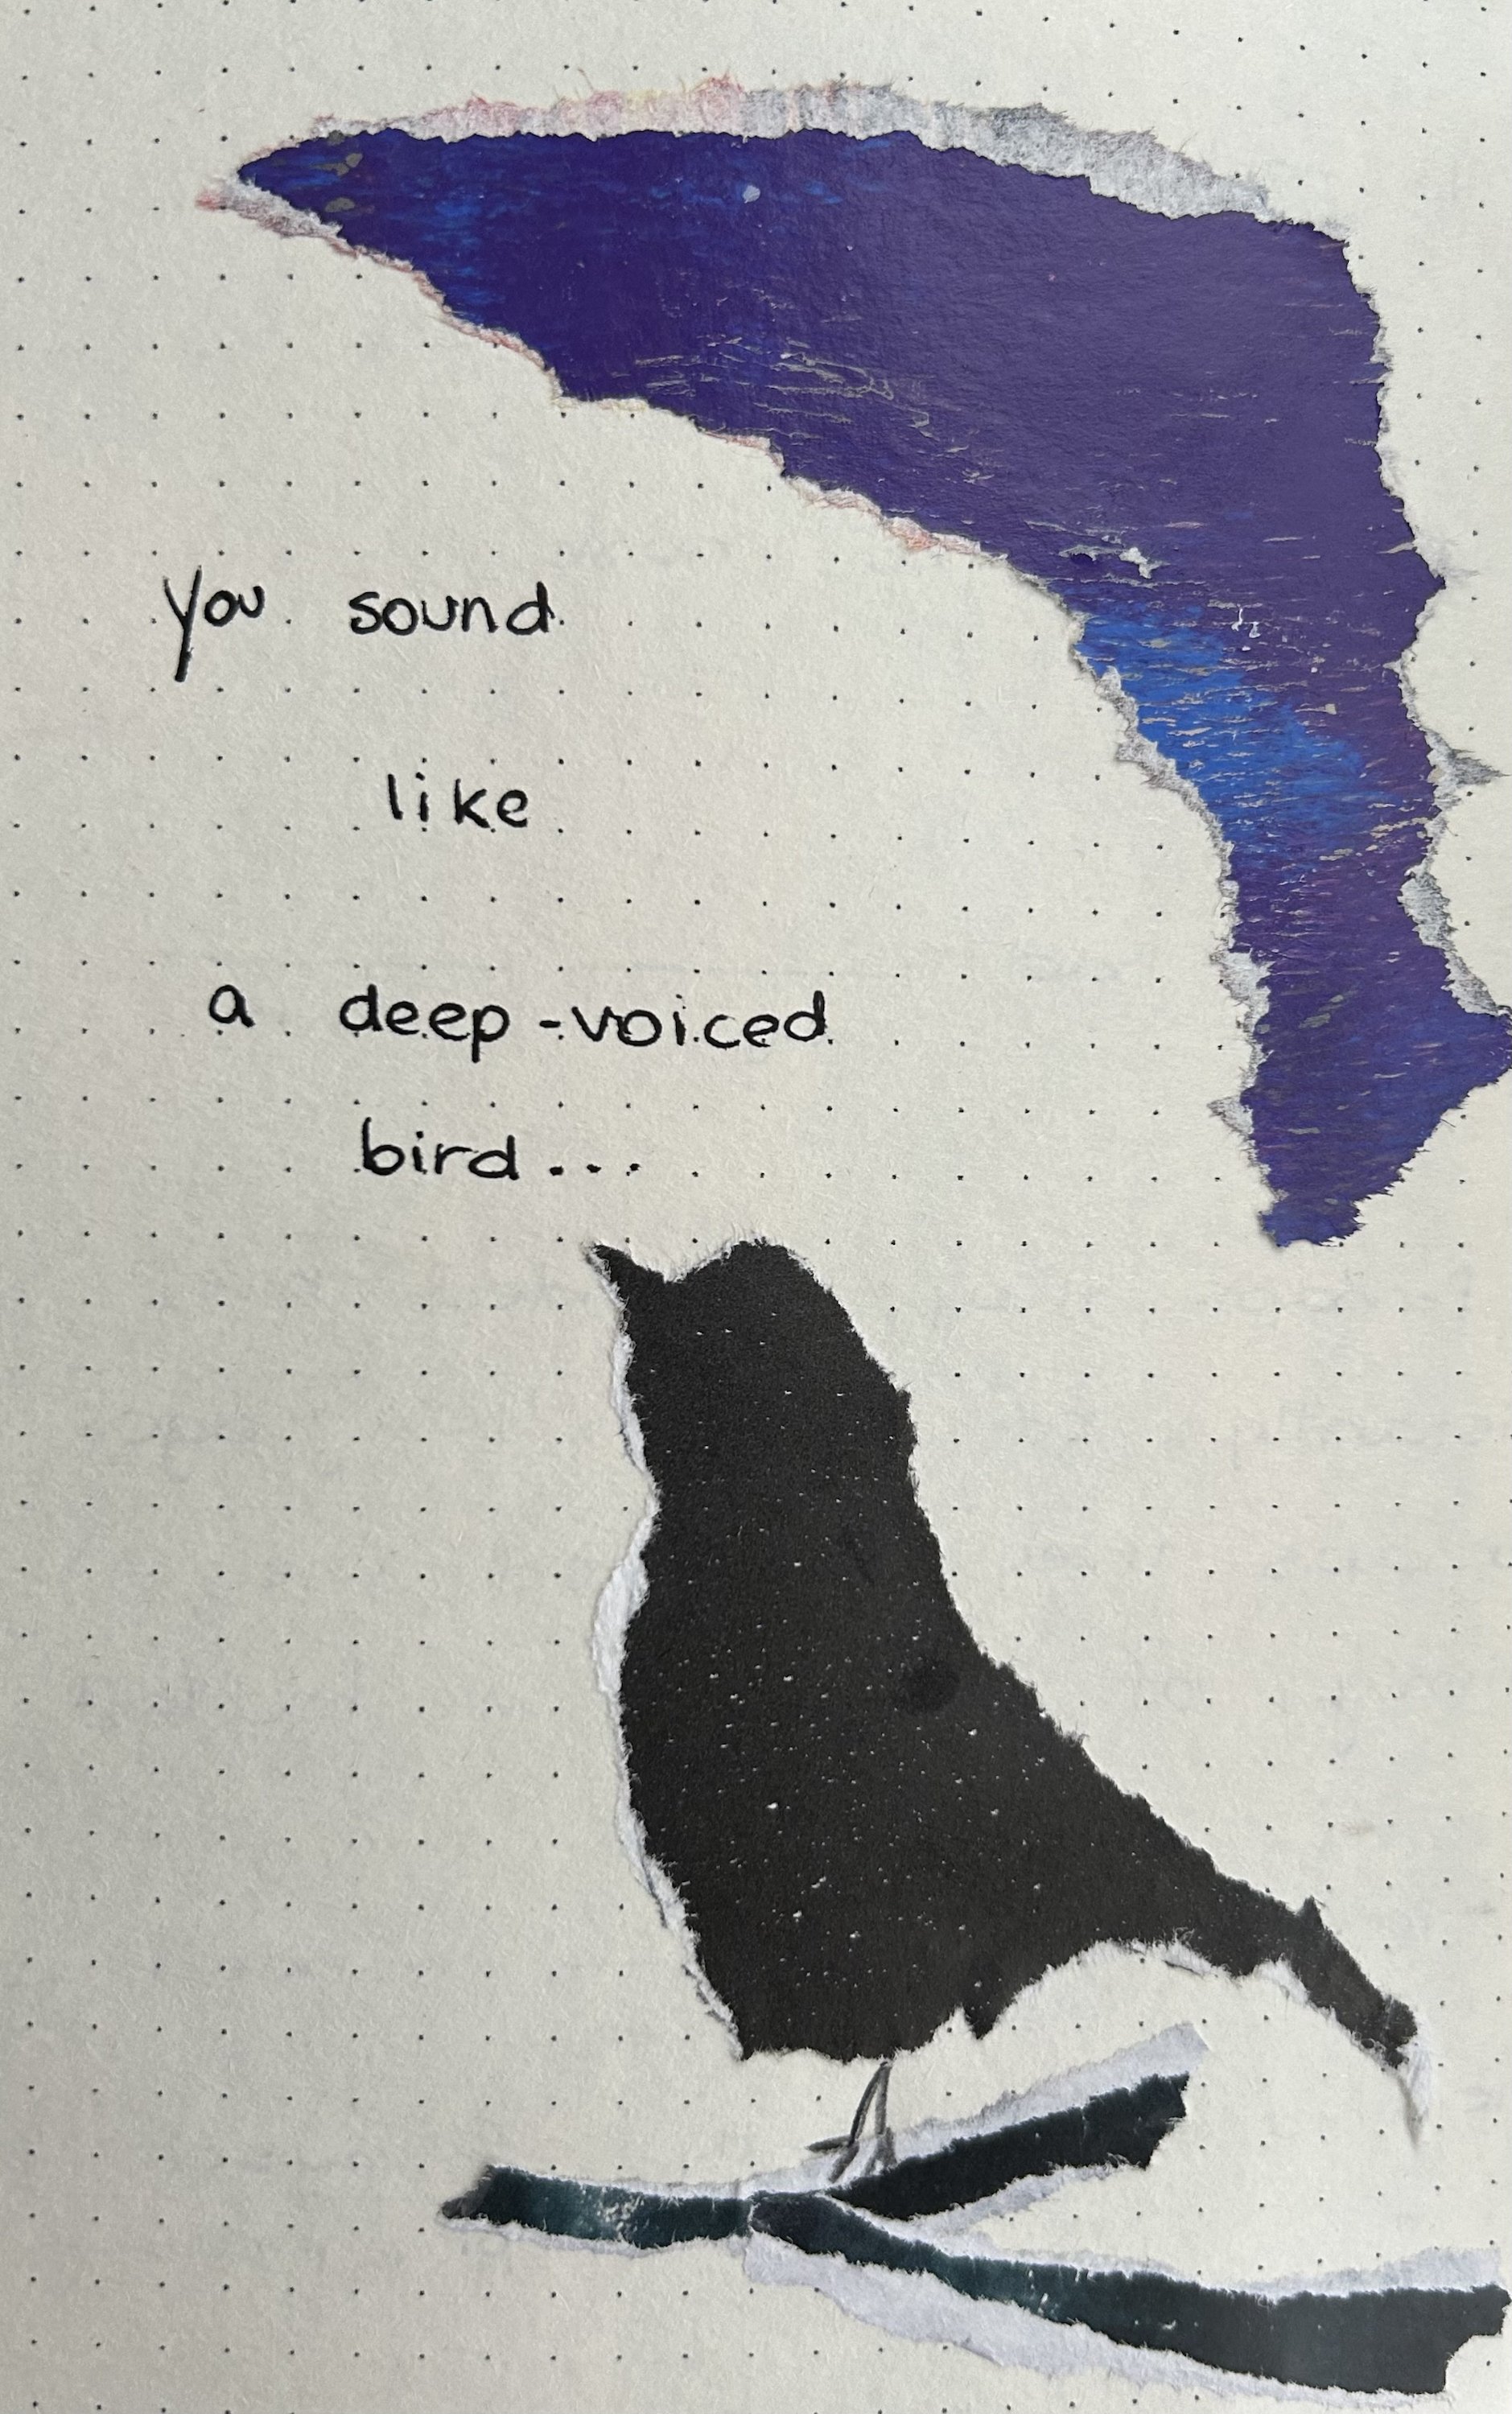 you sound
like
a deep-voiced
bird...